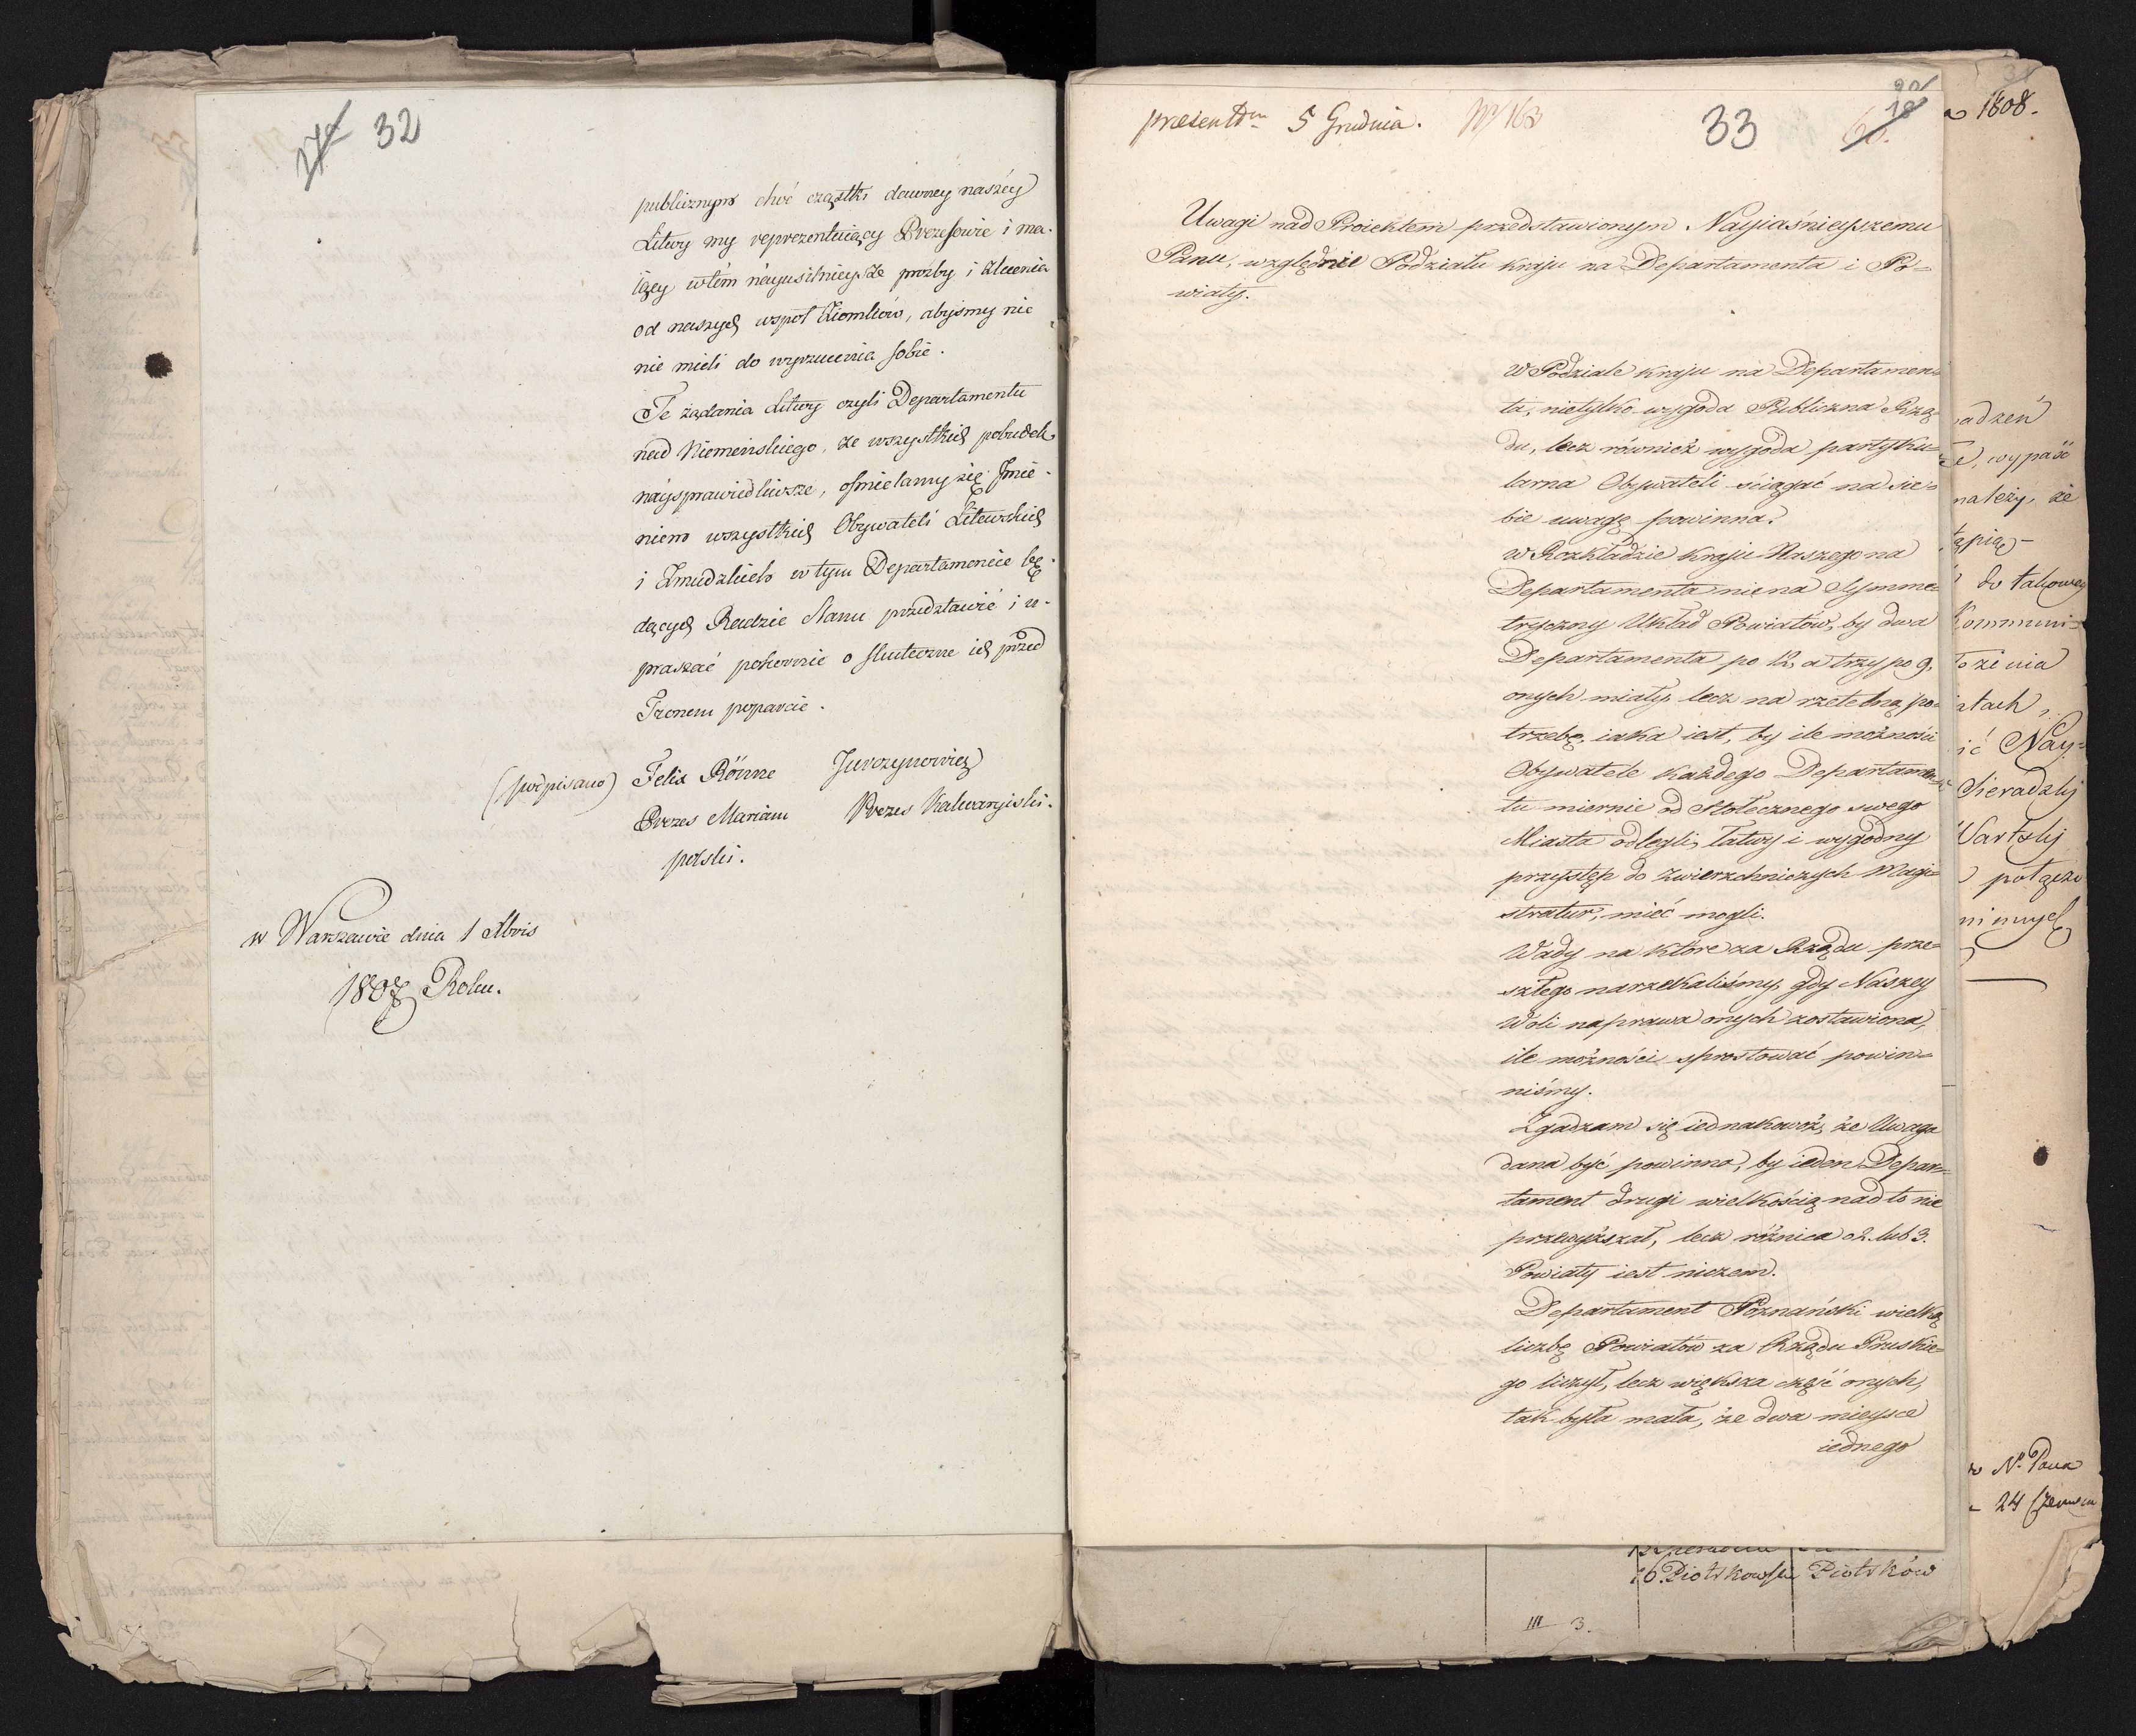 32
publicznym choć cząstki dawney naszéy
Litwy my reprezentuiący Prezesowie i ma-
iący w tém nayusilnieysze prozby i zlecenia
od naszych wspoł Ziomków, abyśmy nic
nie mieli do wyrzucenia sobie.
Te żądania Litwy czyli Departamentu
nad Niemenskiego, ze wszystkich pobudek
náysprawiedliwsze, ośmielamy się Jmie-
niem wszystkich Obywateli Litewskich
i Zmudzkich w tym Departamencie bę-
dących Radzie Stanu przedstawić i u-
praszać pokornie o skuteczne ich przed
Tronem poparcie.
(podpisano) Felix Rönne Jurczynowicz
Prezes Mariam Prezes Kalwaryiski.
polski.
w Warszawie dnia 1 Xbris
1807 Roku.
presentm 5 Grudnia. N 163
33
Uwagi nad Proiektem przedstawionym Nayiaśnieyszemu
Panu, względnie Podziału kraju na Departamenta i Po=
wiaty.
W Podziale kraju na Departamen=
ta, nietylko wygoda Publiczna Rzą=
du, lecz również wygoda partyku=
larna Obywateli ściągać na sie=
bie uwagę powinna.
w Rozkładzie kraju Naszego na
Departamenta nie na Symme=
tryczny Układ Powiatów, by dwa
Departamenta po 12, a trzy po 9,
onych miały, lecz na rzetelną po=
trzebę, iaka iest, by ile możności
Obywatele każdego Departamen=
tu miernie od Stołecznego swego
Miasta odlegli, łatwy i wygodny
przystęp do Zwierzchniczych Magi=
stratur, mieć mogli.
Wady na które za Rządu prze=
szłego narzekaliśmy, gdy Naszey
Woli naprawa onych zostawiona,
ile możności sprostować powin=
niśmy.
Zgadzam się iednakowoż, że Uwaga
dana być powinna, by ieden Depar=
tament drugi wielkością nadto nie
przewyższał, lecz różnica o 2. lub 3.
Powiaty iest niczem.
Departament Poznański wielką
liczbę Powiatów za Rządu Pruskie=
go liczył, lecz większa część onych,
tak była mała, że dwa mieysce
iednego
1808.
adzeń
wypaść
należy, że
tąpią-
do takowey
Kommuni=
ożenia
tach,
ić Nay=
Sieradzkij
Wartskij
połącze
N. Pana
24 Czerwca
10. Piotrkowski Piotrków
III 3.